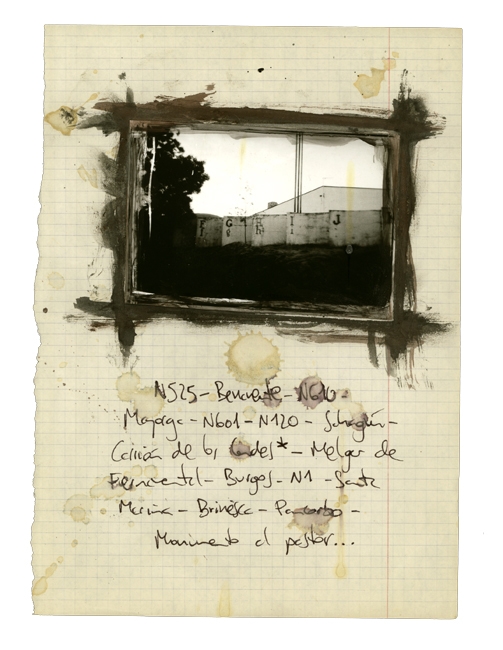 F G E I J
N525 - Benavente - N610 -
Mayorga - N601 - N120 - Sahagún -
Carrión de los Condes* - Melgar de
Fernamental - Burgos - N1 - Santa
María - Briviesca - Pancorbo -
Monumento al pastor...